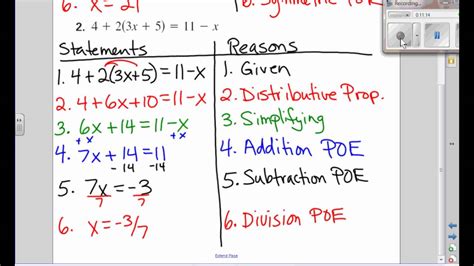 6. x = 21 6. Symmetric POE
2. 4 + 2(3x + 5) = 11 − x
Statements Reasons
1. 4+2(3x+5)=11-x 1. Given
2. 4+6x+10=11-x 2. Distributive Prop.
3. 6x+14=11-x 3. Simplifying
+x +x
4. 7x+14=11 4. Addition POE
-14 -14
5. 7x=-3 5. Subtraction POE
7 7
6. x=-3/7 6. Division POE
Extend Page
Recording...
0:11:14